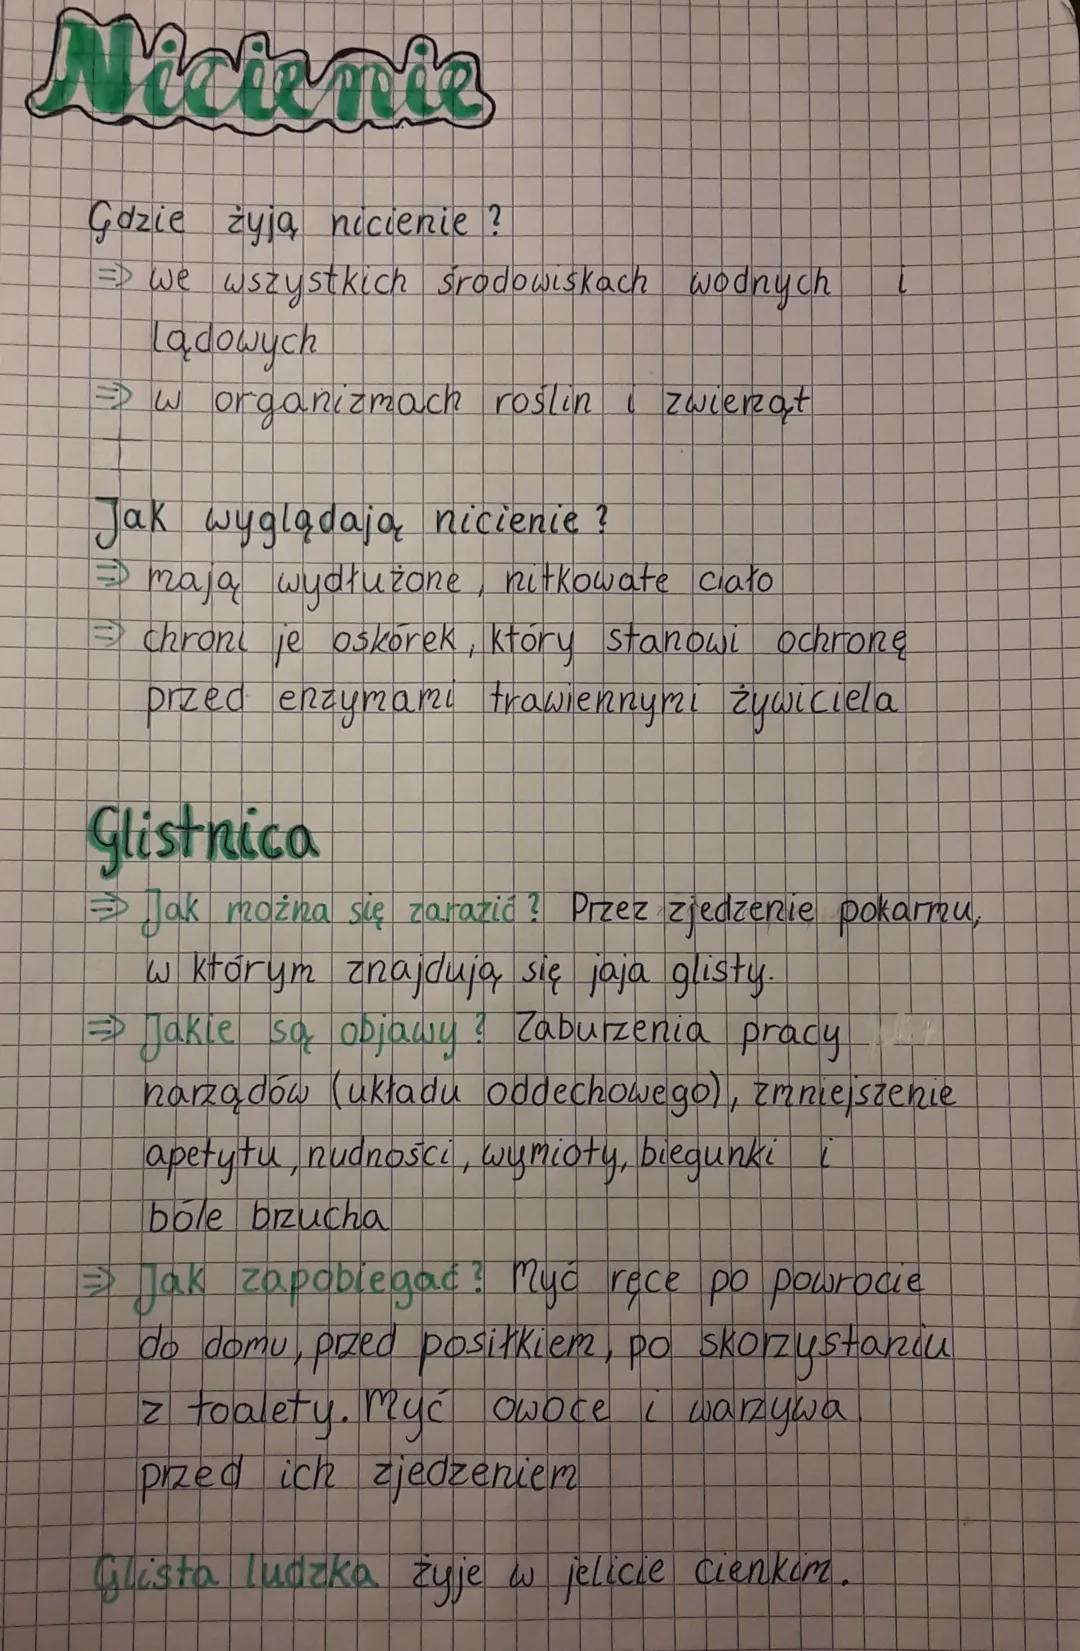 Nicienie
Gdzie żyją nicienie?
=> we wszystkich środowiskach wodnych i
lądowych
=> w organizmach roślin i zwierząt
Jak wyglądają nicienie?
=> mają wydłużone, nitkowate ciało
=> chroni je oskórek, który stanowi ochronę
przed enzymami trawiennymi żywiciela
Glistnica
=> Jak można się zarazić? Przez zjedzenie pokarmu,
w którym znajdują się jaja glisty.
=> Jakie są objawy? Zaburzenia pracy
narządów (układu oddechowego), zmniejszenie
apetytu, nudności, wymioty, biegunki i
bóle brzucha
=> Jak zapobiegać? Myć ręce po powrocie
do domu, przed posiłkiem, po skorzystaniu
z toalety. Myć owoce i warzywa
przed ich zjedzeniem
Glista ludzka żyje w jelicie cienkim.